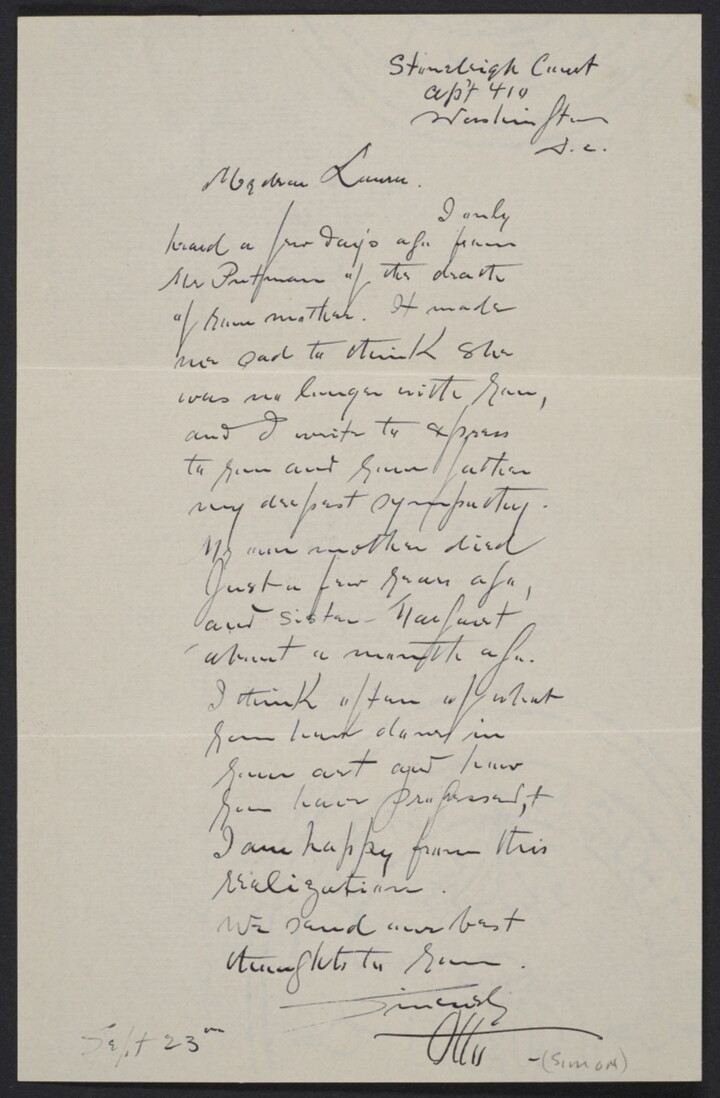 Stoneleigh Court
apt 410
Washington
D.C.
My dear Laura.
I only
heard a few days ago from
Mr Putman of the death
of your mother. It made
me sad to think she
was no longer with you,
and I write to express
to you and your father
my deepest sympathy.
My own mother died
Just a few years ago,
and sister - Margaret
about a month ago.
I think often of what
you have done in
your art and how
you have progressed, +
I am happy from this
realization.
We send our best
thoughts to you.
Sincerely
Otto
-(SIMON)
Sept 23